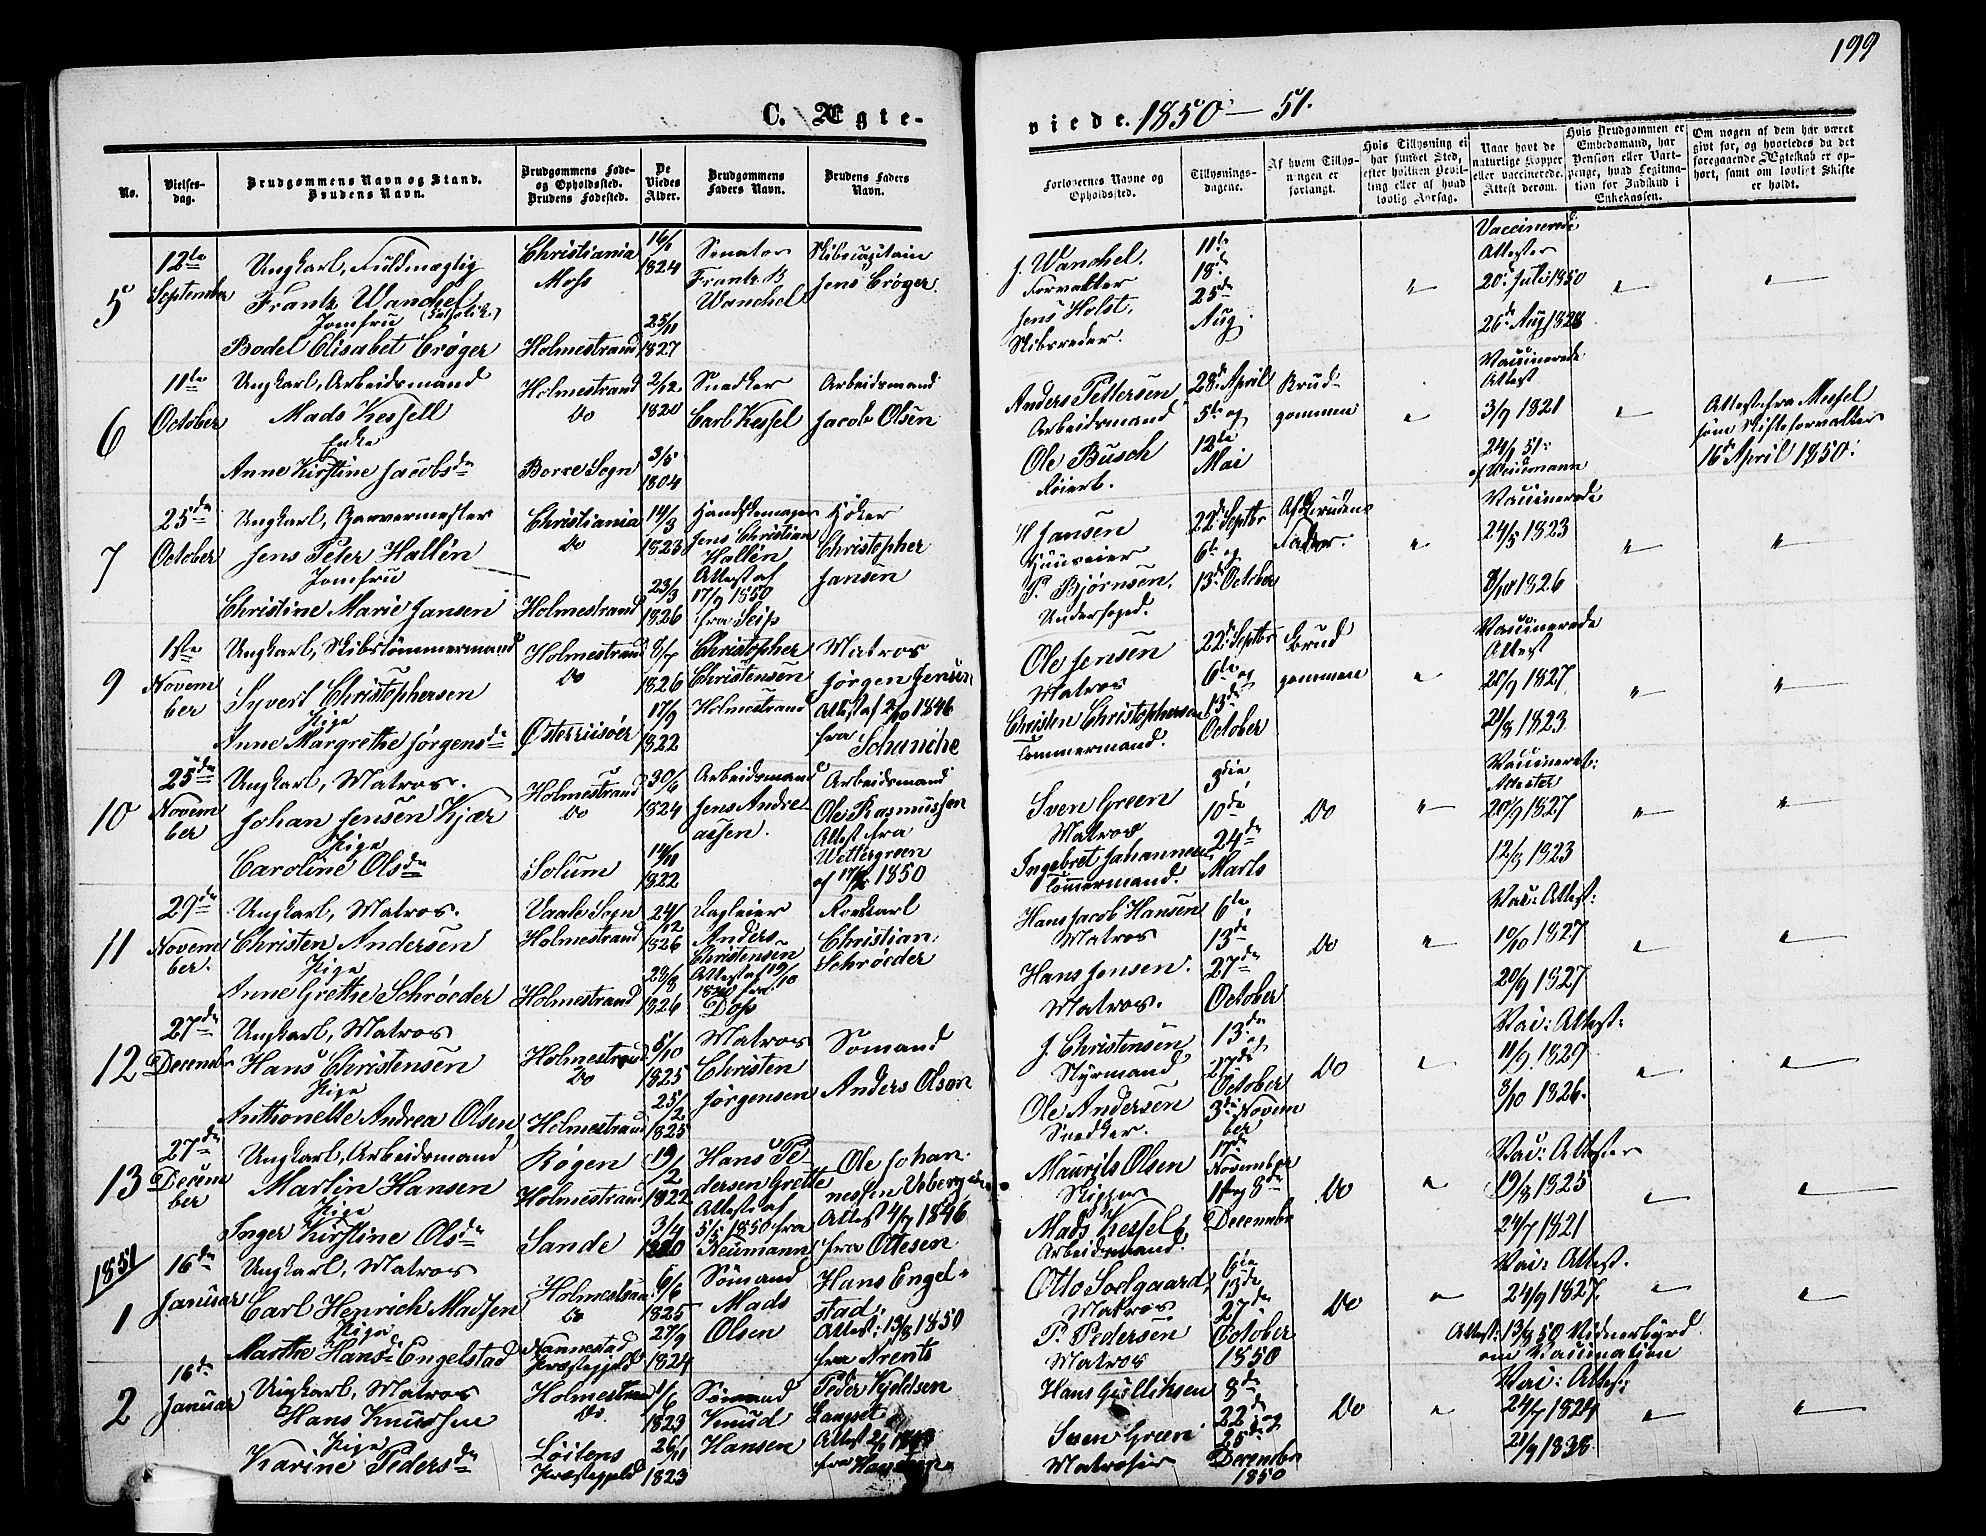 199
C. Ægte-
viede. 1850 — 51.
No.
Vielses-
dag.
Brudgommens Navn og Stand.
Brudens Navn.
Brudgommens Føde-
og Opholdssted.
Brudens Fødested.
De
Viedes
Alder.
Brudgommens
Faders Navn.
Brudens Faders
Navn.
Forlovernes Navne og
Opholdssted.
Tillysnings-
dagene.
Af hvem Tillys-
ningen er
forlangt.
Hvis Tillysning ei
har fundet Sted,
efter hvilken Bevil-
ling eller af hvad
lovlig Aarsag.
Naar havt de
naturlige Kopper
eller vaccinerede.
Attest derom.
Hvis Brudgommen er
Embedsmand, har
Pension eller Vart-
penge, hvad Legitima-
tion for Indskud i
Enkekassen.
Om nogen af dem har været
gift før, og hvorledes da det
foregaaende Ægteskab er op-
hørt, samt om lovligt Skifte
er holdt.
5
12te
September
Ungkarl, Fuldmægtig
Frantz Wanchel
Jomfru (Catholik)
Bodel Elisabet Crøger
Christiania
Moss
Holmestrand
16/1
1824
25/11
1827
Senator
Frantz B
Wanchel
Skibscapitain
Jens Crøger
J. Wanchel.
Forvalter
Jens Holst.
Skibsreder.
11te
18de
25de
Aug.
Vaccinerede
Attester
20de Juli 1850
26de Aug 1828
6
11te
October
Ungkarl, Arbeidsmand
Mads Kessell
Enke
Anne Kirstine Jacobsdr
Holmestrand
do
Borre Sogn
2/12
1820
3/5
1804
Snedker
Carl Kessel
Arbeidsmand
Jacob Olsen
Anders Pettersen
Arbeidsmand
Ole Busch
Feierb.
28de April
5te og
12te
Mai
Brud-
gommen
Vaccinerede
Attest
3/9 1821
24/7 51
Attest fra Messel
som Skifteforvalter
16de April 1850.
7
25de
October
Ungkarl, Garvermester
Jens Peter Hallén
Jomfru
Christine Marie Jansen
Christiania
do
Holmestrand
14/3
1823
23/3
1826
Handskemager
Jens Christian
Hallén
Attest af
17/9 1850
fra Seip
Høker
Christopher
Jansen
H Jansen
P. Bjørnsen.
Undersøged.
22de Septbr
6te og
13de October
Af Brudens
Fader.
Vaccinerede
24/5 1823
9/10 1826
9
1ste
Novem
ber
Ungkarl, Skibstømmermand
Syvert Christophersen
Pige
Anne Margrethe Jørgensdr
Holmestrand
do
Østerriisøer
8/7
1826
17/9
1822
Christopher
Christensen
Holmestrand
Matros
Jørgen Jensen
Attest af 2/10 1846
fra
Schanche
Ole Jensen
Matros
Christen Christophersen
Tømmermand.
22de Septbr
6te og
13de
October
Brud
gommen
Vaccinerede
Attest
20/9 1827
21/8 1823
10
25de
Novem
ber
Ungkarl, Matros.
Johan Jensen Kjær
Pige
Caroline Olsdr
Holmestrand
do
Solum
30/6
1824
14/11
1822
Arbeidsmand
Jens Andre
assen.
Arbeidsmand
Ole Rasmussen
Attest fra
Wettergreen
Sven Green
Matros
Ingebret Johannesen
Tømmermand.
3die
10de
24de
Marts
do
Vaccineret:
Attester
20/9 1827
12/3 1823
11
29de
Novem
ber.
Ungkarl, Matros.
Christen Andersen
Pige
Anne Grethe Schrøeder
Vaale Sogn
Holmestrand
Holmestrand
24/12
1826
28/8
1826
Anders
Christensen
Attest af 19/10
1850 fra
Dop
Christian
Schrøeder
Hans Jacob Hansen
Matros
Hans Jensen.
Matros.
6te
13de
27de
October
do
Vac: Attest:
10/10 1827
20/9 1827
12
27de
December
Ungkarl, Matros
Hans Christensen
Pige
Anthonette Andrea Olsen
Holmestrand
do
Holmestrand
5/10
1825
25/2
1825
Matros
Christen
Jørgensen
Sømand
Anders Olsen
J. Christensen
Styrmand
Ole Andersen
Snedker.
13de
27de
October
3de Novem
ber
do
Vac: Attest:
11/9 1829
3/10 1826.
13
27de
Decem
ber
Ungkarl, Arbeidsmand
Martin Hansen
Pige
Inger Kirstine Olsdr
Røgen
Holmestrand
Sande
19/2
1822
3/4
1820
Hans Pe
dersen Grette
Attest af
5/5 1850 fra
Neumann
Ole Johan
nessen
Attest 4/7 1846
fra Ottesen
Maurits Olsen
Skipper
Mads Kessel
Arbeidsmand.
17de
November
1ste og 8de
December
do
Vac: Attester
19/8 1825
24/7 1821
1851
1
16de
Januar
Ungkarl, Matros
Carl Henrich Madsen
Pige
Marthe Hansdr Engelstad
Holmestrand
do
Nannestad
Præstegjeld
6/6
1825
27/9
1824
Sømand
Mads
Olsen
Hans Engel=
stad
Attest: 13/8 1850
fra Arents
Otto Solgaard
Matros
P. Pedersen
Matros
6te
13de
27de
October
1850
do
Vac: Attest.
24/9 1827.
Attest: 13/8 50 Vidnerbyrd
om Vaccination
2
16de
Januar
Ungkarl, Matros
Hans Knudsen
Pige
Karine Pedersdr
Holmestrand
do.
Løitens
Præstegjeld
1/6
1823
26/11
1823
Sømand
Knud
Hansen
Peder Kjeldsen
Langset
Hans Gulliksen
Sven Green
Matroser
8de
22de og
25de
December
1850
do
Vac: Attest:
24/7 1824
21/9 1838.